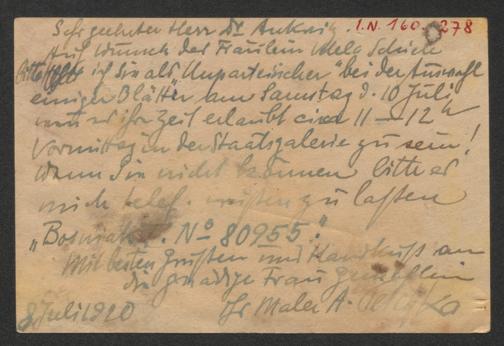 Sehr geehrter Herr Dr. Ankwicz. I.N. 160.278
Auf Wunsch der Fräulein Mela
bitte ich Sie als "Unparteiischer" bei der Auswahl
einiger Blätter am Samstag d. 10 Juli,
wenn es ihr Zeit erlaubt circa 11 – 12 h
Vormittag in der Staatsgalerie zu sein!
Wenn Sie nicht können bitte es
mich telef. wissen zu lassen
No 80955."
Mit besten Grüßen und Handkuß an
die gnädige Frau Gemahlin
Ihr Maler A.
8 Juli 1920